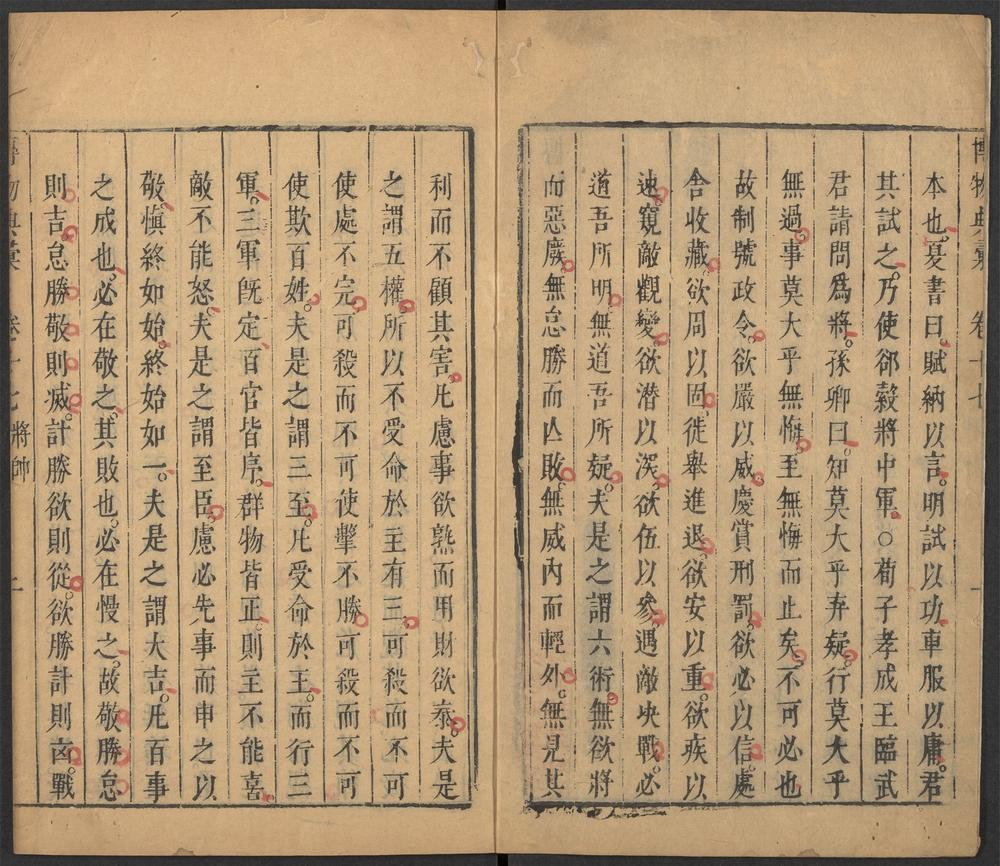 博物典彙 卷十七
本也。夏書曰。賦納以言。明試以功。車服以庸。君
其試之。乃使郤縠將中軍。○荀子孝成王臨武
君請問爲將。孫卿曰。知莫大乎弃疑。行莫大乎
無過。事莫大乎無悔。至無悔而止矣。不可必也
故制號政令。欲嚴以威。慶賞刑罰。欲必以信。處
舍收藏。欲周以固。徙舉進退。欲安以重。欲疾以
速。窺敵觀變。欲潛以深。欲伍以參。遇敵决戰。必
道吾所明。無道吾所疑。夫是之謂六術。無欲將
而惡廢。無怠勝而亾敗。無威內而輕外。無見其
利而不顧其害。凡慮事欲熟而用財欲泰。夫是
之謂五權。所以不受命於主有三。可殺而不可
使處不完。可殺而不可使擊不勝。可殺而不可
使欺百姓。夫是之謂三至。凡受命於主。而行三
軍。三軍旣定。百官皆序。群物皆正。則主不能喜。
敵不能怒。夫是之謂至臣。慮必先事而申之以
敬。慎終如始。終始如一。夫是之謂大吉。凡百事
之成也。必在敬之。其敗也。必在慢之。故敬勝怠
則吉。怠勝敬則滅。計勝欲則從。欲勝計則凶。戰
博物典彙 卷十七 將帥